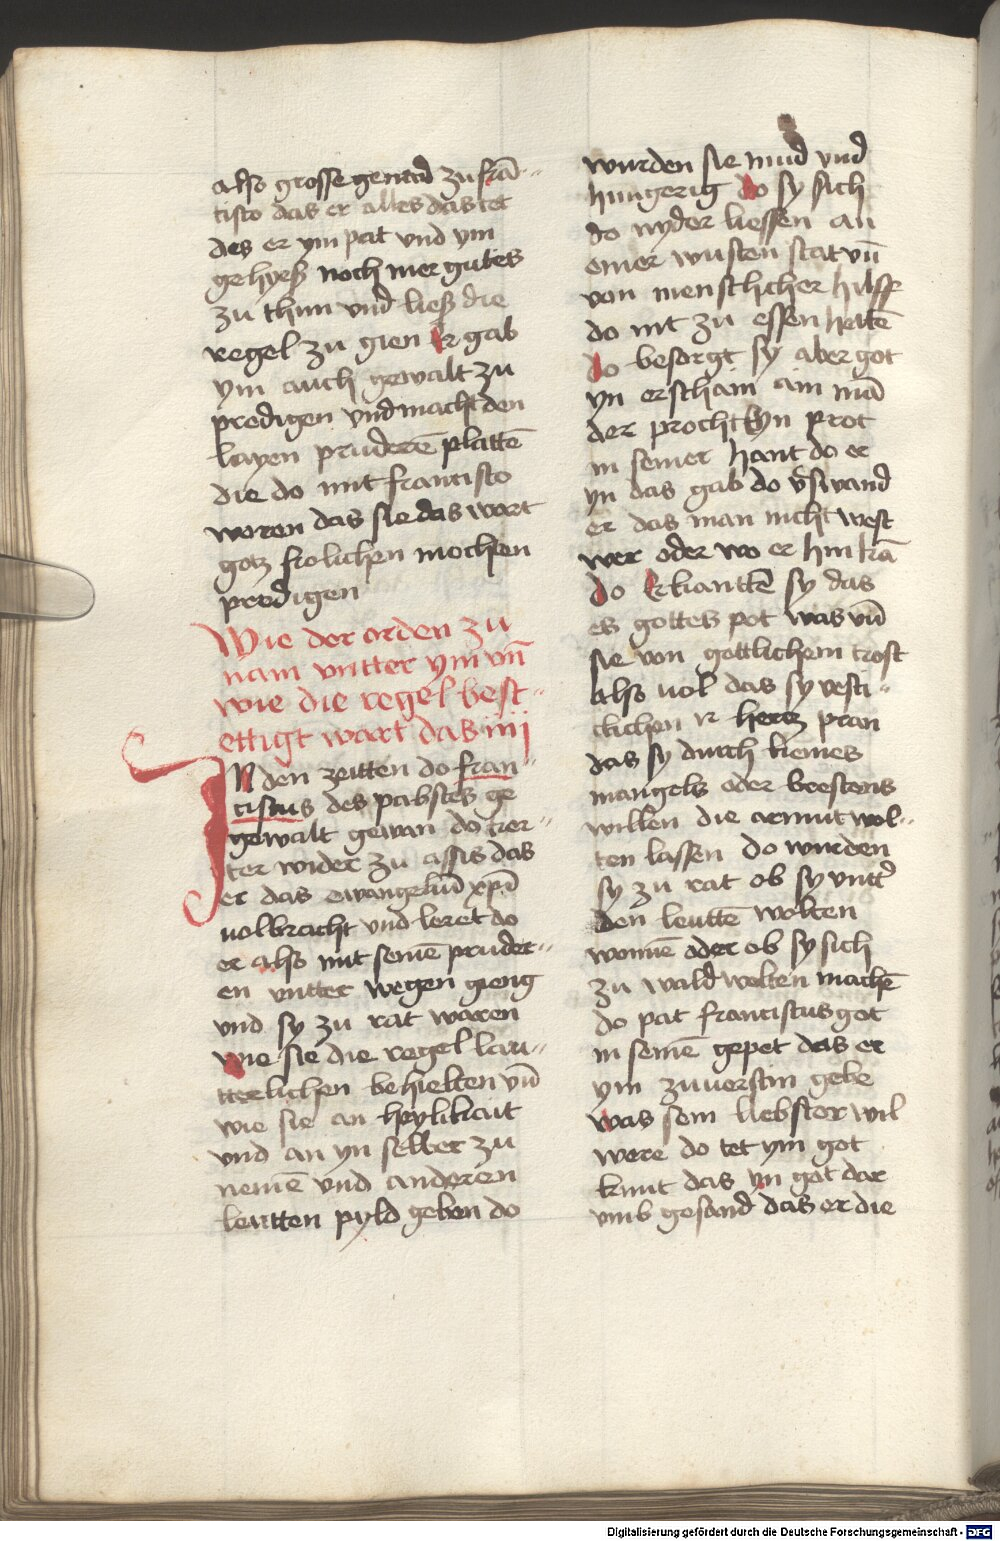 also grosse genad zu frā-
cisco das er alles das tet
des er ym pat vnd ym
gehyeß noch mer gutes
zu thun vnd ließ die
regel zu gien Er gab
ym auch gewalt zu
predigen vnd macht den
layen pruderē plattē
die do mit francisco
woren das sie das wort
gotz frolichen mochten
predigen
Wie der orden zu
nam vntter ym vn̄
wie die regel best-
ettigt wart das iiij
IN den zeitten do fran-
ciscus des pabstes ge
gewalt gewan do ker-
ter wider zu assis das
er das ewangeliū xp̄i
uolbracht vnd leret do
er also mit seinē pruder-
en vntter wegen gieng
vnd sy zu rat waren
wie sie die regel lau-
tterlichen behielten vn̄
wie sie an heylikait
vnd an yn selber zu
nemē vnd anderen
leutten pyld geben do
wurden sie mud vnd
hungerig do sy sich
do nyder liessen an
einer wusten stat vn̄
von menschlicher hilff
do nit zu essen hettē
do besorgt sy aber got
yn erschain ain mā
der procht yn prot
in seiner hant do er
yn das gab do v̄swand
er das man nicht west
wer oder wo er hin kā
do Erkanttē sy das
es gottes pot was vn̄
sie von gottlichem trost
also uol das sy vesti-
cklichen ir hertz pran
das sy durch keines
mangels oder bresteus
willen die armut wol-
ten lassen do wurden
sy zu rat ob sy vntt̄
den leuttē wolten
wonē oder ob sy sich
zu wald wolten machē
do pat franciscus got
in seinē gepet das er
ym zuuerstin gebe
was sein liebster wil
were do tet ym got
kunt das yn got dar
vmb gesand das er die
Digitalisierung gefördert durch die Deutsche Forschungsgemeinschaft - DFG